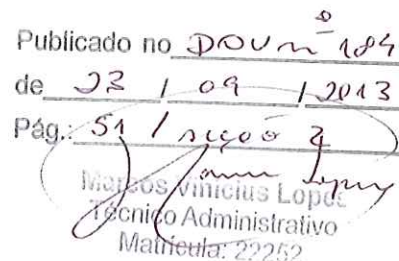 Publicado no DOU nº 184
de 23 / 09 / 2013
Pág.: 51 / seção 2
Marcos Vinicius Lopes
Técnico Administrativo
Matrícula: 22252